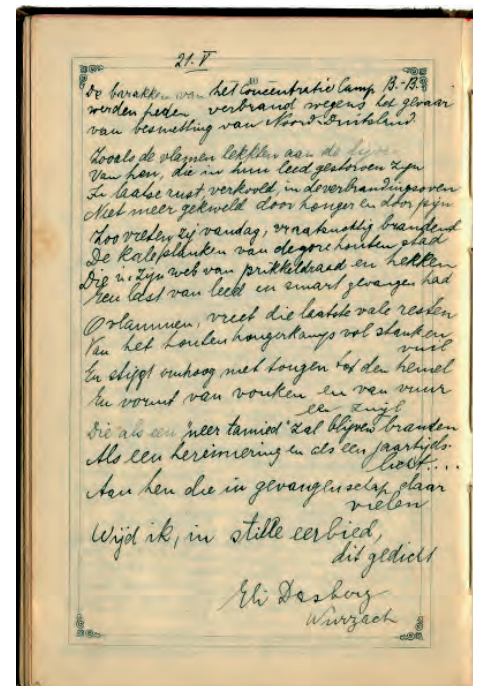 21. V
De barakken van het Concentratie Camp B.-B.
werden heden verbrand wegens het gevaar
van besmetting van Noord-Duitsland
Zooals de vlammen lekten aan de
Van hen, die in hun leed gestorven zijn
In laatse rust, verkoold, in de verbrandingsoven
Niet meer gekweld door honger en door pijn
Zoo vreten zij vandaag, vraatzuchtig brandend
De kale planken van de gore houten stad
Die in zijn web van prikkeldraad en hekken
Een last van leed en smart gevangen had
O vlammen, vreet die laatste vale resten
Van het houten hongerkamp vol stank en
vuil
En stijgt omhoog met tongen tot den hemel
En vormt van vonken en van vuur
een zuil
Die als een "neer tamied" zal blijven branden
Als een herinnering en als een jaartijds-
licht....
Aan hen die in gevangenschap daar
vielen
Wijd ik, in stille eerbied,
dit gedicht
Eli Dasberg
Wurzach